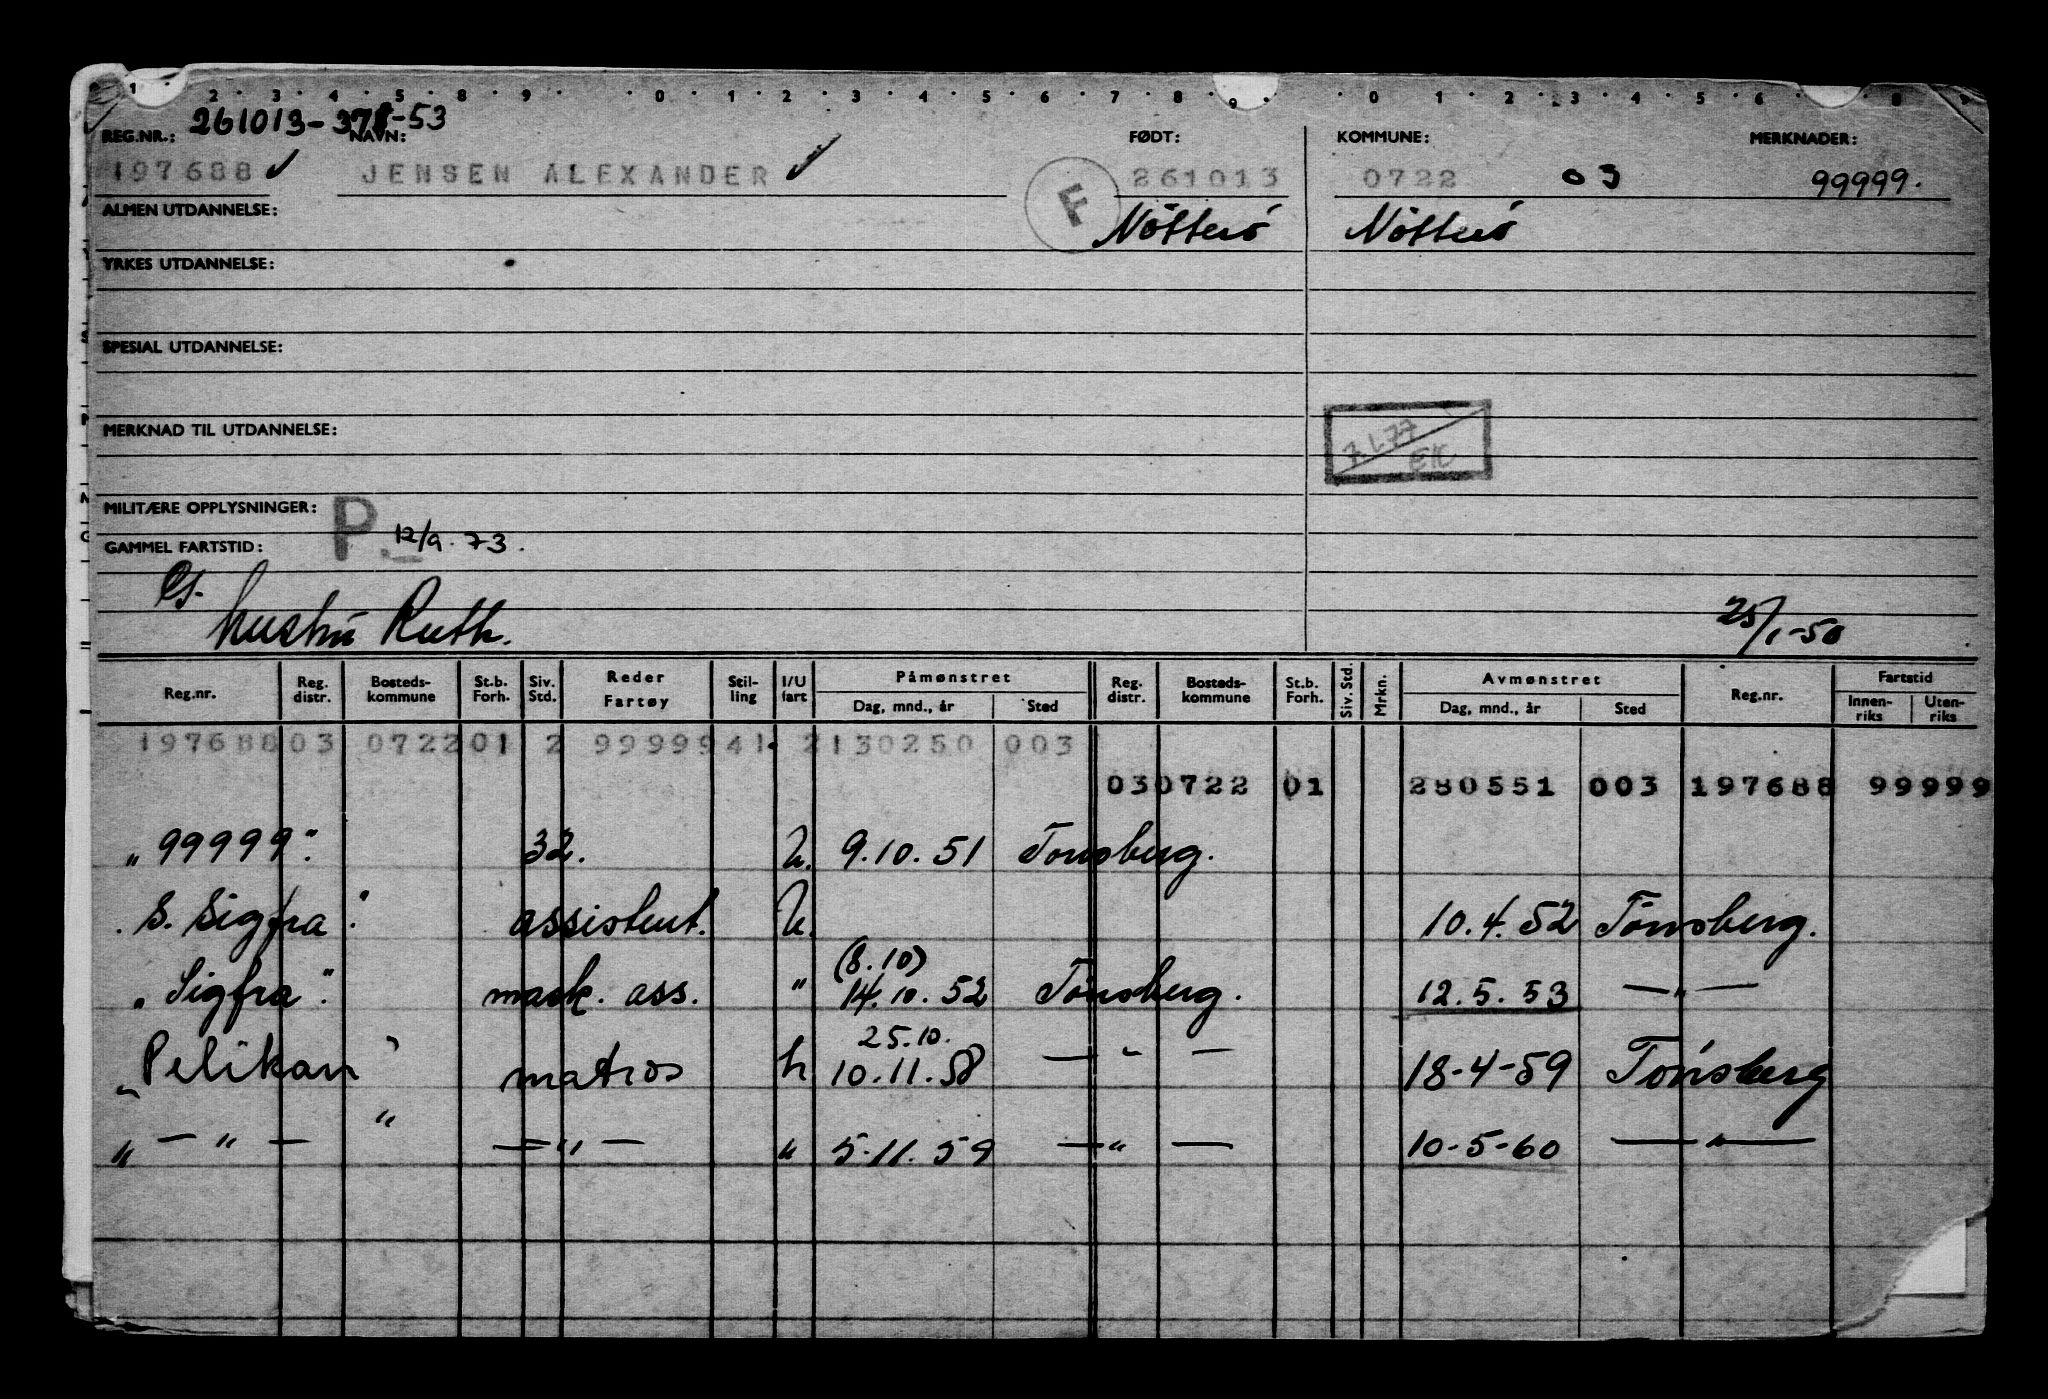 1 · 2 · 3 · 4 · 5 · 8 · 9 · · 0 · 1 · 2 · 3 · 4 · 5 · 6 · 7 · 8 · 9 · · 0 · 1 · 2 · 3 · 4 · 5 · 6 · 8
261013-378-53
REG.NR.: NAVN: FØDT: KOMMUNE: MERKNADER:
197688 ✓ JENSEN ALEXANDER ✓ F 261013 0722 03 99999.
ALMEN UTDANNELSE: Nötterö Nötterö
YRKES UTDANNELSE:
SPESIAL UTDANNELSE:
MERKNAD TIL UTDANNELSE:
7.1.77
EK
MILITÆRE OPPLYSNINGER:
P. 12/9.73.
GAMMEL FARTSTID:
hustru Ruth. 25/1-50
Reg.nr. Reg. distr. Bosteds-kommune St.b. Forh. Siv. Std. Reder Fartøy Stil-ling I/U fart Påmønstret Dag, mnd., år Sted Reg. distr. Bosteds-kommune St.b. Forh. Siv. Std. Mrkn. Avmønstret Dag, mnd., år Sted Reg.nr. Fartstid Innen-riks Uten-riks
197688 03 0722 01 2 99999 41 2 130250 003
03 0722 01 280551 003 197688 99999
„99999". 32. U. 9.10.51 Tønsberg.
„S. Sigfra". assistent. U. 10.4.52 Tønsberg.
(8.10)
„Sigfra". mask. ass. " 14.10.52 Tønsberg. 12.5.53 — " —
25.10.
„Pelikan" matros U 10.11.58 — " — 18-4-59 Tønsberg
„ — " — " — " — " 5.11.59 — " — 10-5-60 — " —